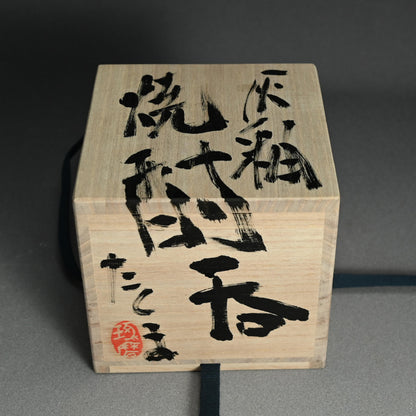 灰釉
焼酎呑
たくま
琢磨